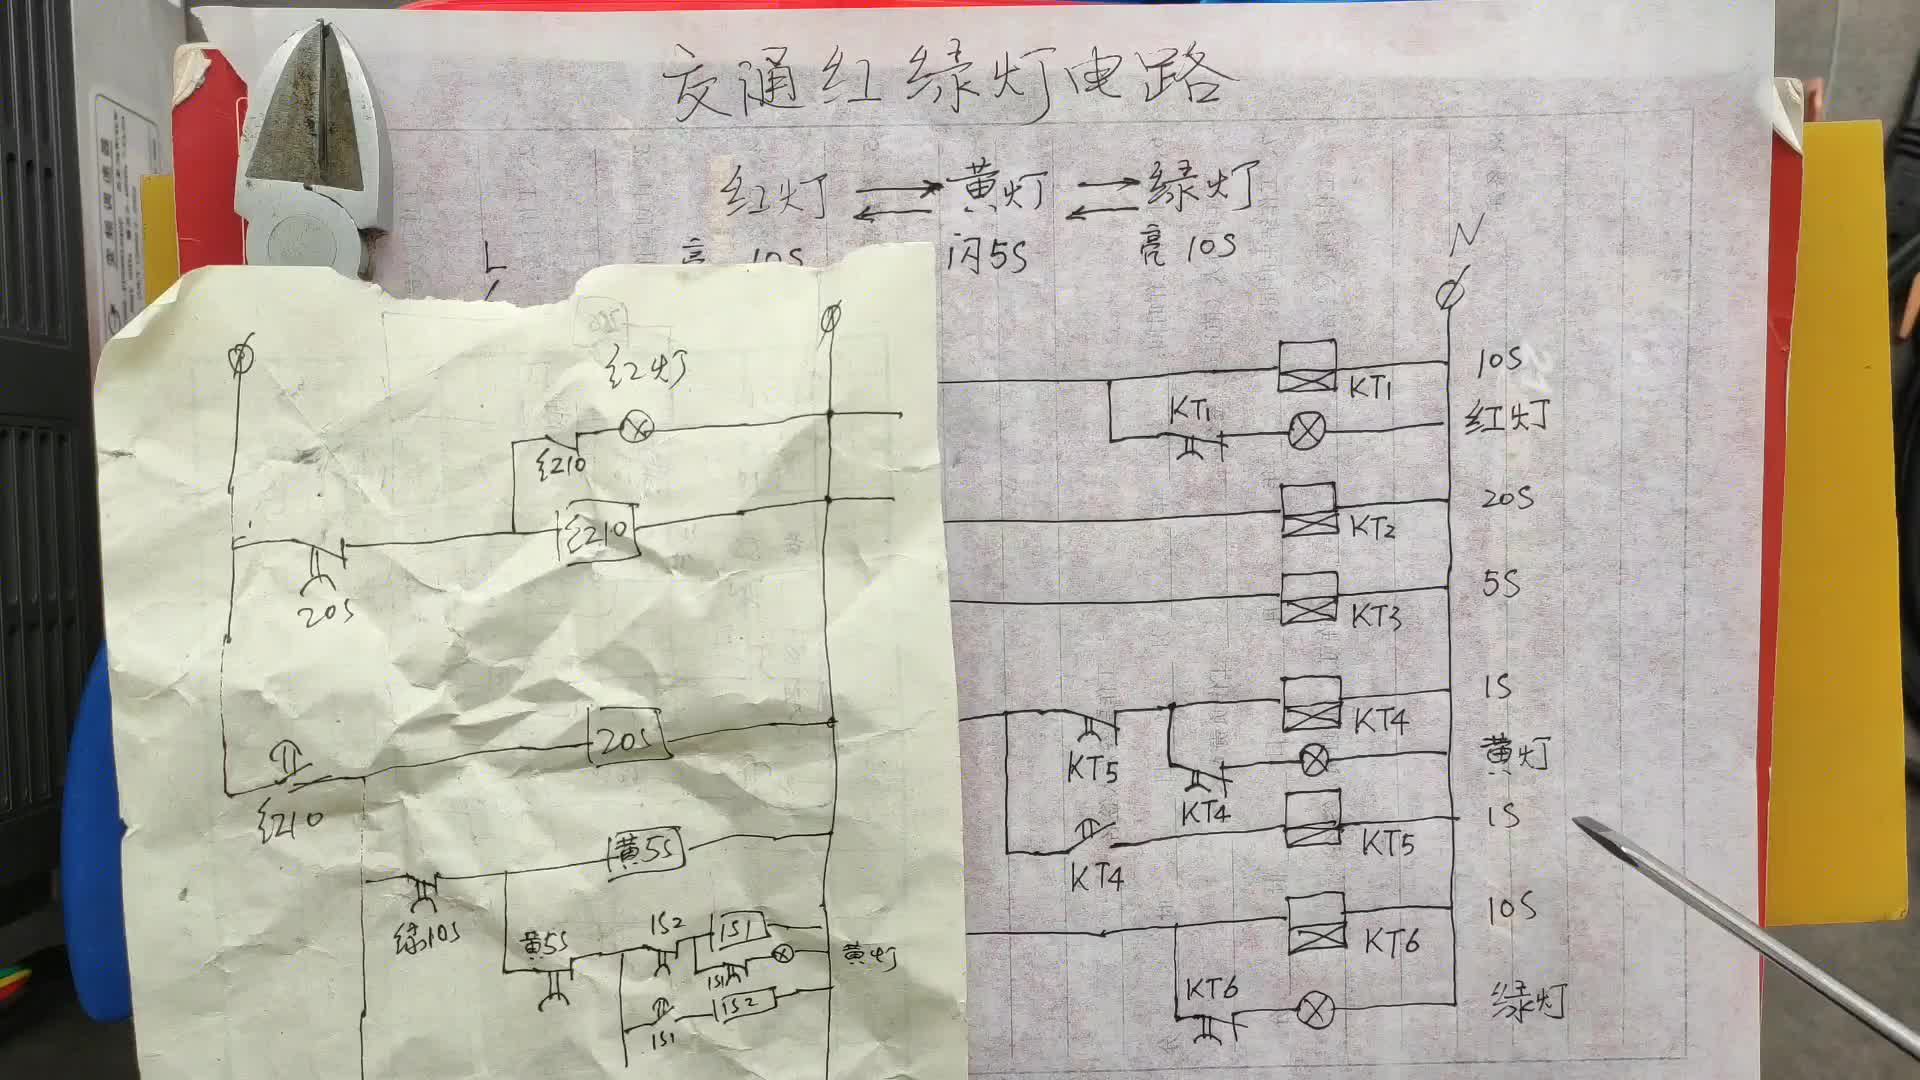 交通红绿灯电路
红灯 黄灯 绿灯
亮 10S 闪5S 亮 10S
L
N
10S
KT1
KT1
红灯
20S
KT2
5S
KT3
1S
KT4
KT5
黄灯
KT4
1S
KT5
KT4
10S
KT6
KT6
绿灯
红灯
红10
红10
20S
20S
红10
黄5S
绿10S
黄5S
1S2
1S1
黄灯
1S1
1S2
1S1